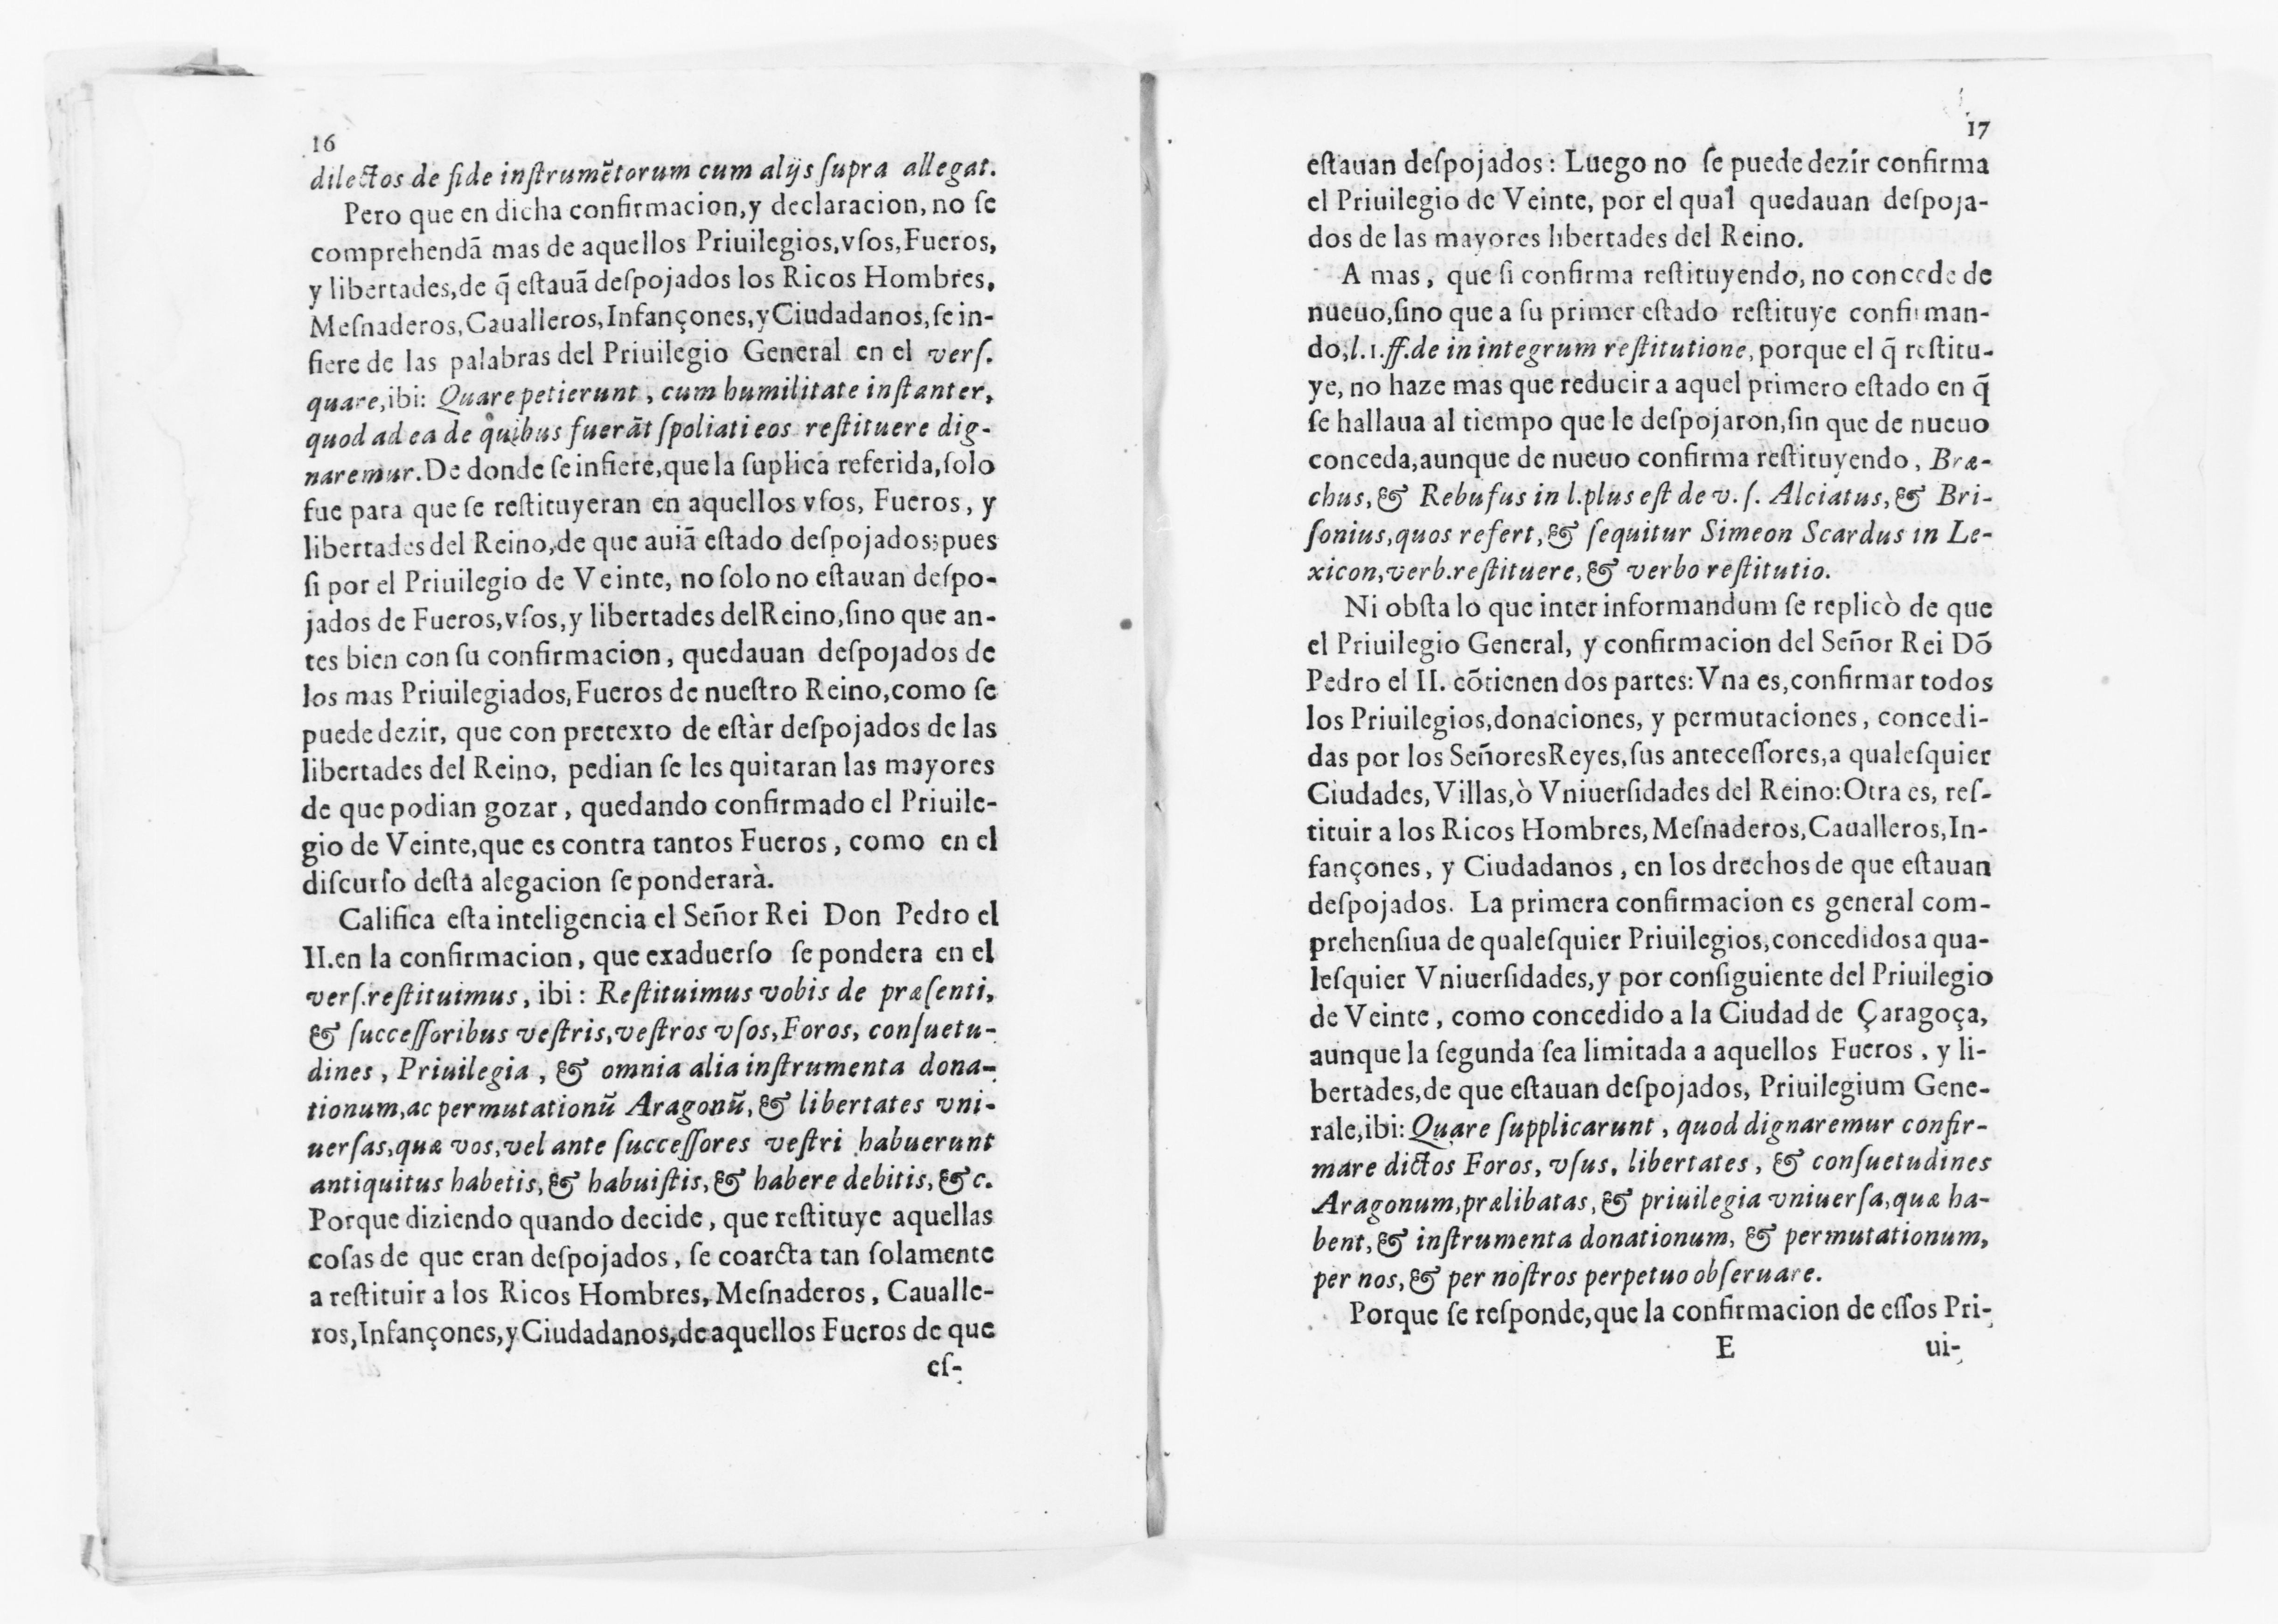 16
dilectos de fide inſtrumẽtorum cum alijs ſupra allegat.
Pero que en dicha confirmacion, y declaracion, no ſe
comprehendã mas de aquellos Priuilegios, vſos, Fueros,
y libertades, de q̃ eſtauã deſpojados los Ricos Hombres,
Meſnaderos, Caualleros, Infançones, y Ciudadanos, ſe in-
fiere de las palabras del Priuilegio General en el verſ.
quare, ibi: Quare petierunt, cum humilitate inſtanter,
quod ad ea de quibus fuerãt ſpoliati eos reſtituere dig-
naremur. De donde ſe infiere, que la ſuplica referida, ſolo
fue para que ſe reſtituyeran en aquellos vſos, Fueros, y
libertades del Reino, de que auiã eſtado deſpojados; pues
ſi por el Priuilegio de Veinte, no ſolo no eſtauan deſpo-
jados de Fueros, vſos, y libertades del Reino, ſino que an-
tes bien con ſu confirmacion, quedauan deſpojados de
los mas Priuilegiados, Fueros de nueſtro Reino, como ſe
puede dezir, que con pretexto de eſtàr deſpojados de las
libertades del Reino, pedian ſe les quitaran las mayores
de que podian gozar, quedando confirmado el Priuile-
gio de Veinte, que es contra tantos Fueros, como en el
diſcurſo deſta alegacion ſe ponderarà.
Califica eſta inteligencia el Señor Rei Don Pedro el
II. en la confirmacion, que exaduerſo ſe pondera en el
verſ. reſtituimus, ibi: Reſtituimus vobis de præſenti,
& ſucceſſoribus veſtris, veſtros vſos, Foros, conſuetu-
dines, Priuilegia, & omnia alia inſtrumenta dona-
tionum, ac permutationũ Aragonũ, & libertates vni-
uerſas, quæ vos, vel ante ſucceſſores veſtri habuerunt
antiquitus habetis, & habuiſtis, & habere debitis, &c.
Porque diziendo quando decide, que reſtituye aquellas
coſas de que eran deſpojados, ſe coarcta tan ſolamente
a reſtituir a los Ricos Hombres, Meſnaderos, Caualle-
ros, Infançones, y Ciudadanos, de aquellos Fueros de que
eſ-
17
eſtauan deſpojados: Luego no ſe puede dezir confirma
el Priuilegio de Veinte, por el qual quedauan deſpoja-
dos de las mayores libertades del Reino.
A mas, que ſi confirma reſtituyendo, no concede de
nueuo, ſino que a ſu primer eſtado reſtituye confirman-
do, l. 1. ff. de in integrum reſtitutione, porque el q̃ reſtitu-
ye, no haze mas que reducir a aquel primero eſtado en q̃
ſe hallaua al tiempo que le deſpojaron, ſin que de nueuo
conceda, aunque de nueuo confirma reſtituyendo, Bræ-
chus, & Rebufus in l. plus eſt de v. ſ. Alciatus, & Bri-
ſonius, quos refert, & ſequitur Simeon Scardus in Le-
xicon, verb. reſtituere, & verbo reſtitutio.
Ni obſta lo que inter informandum ſe replicò de que
el Priuilegio General, y confirmacion del Señor Rei Dõ
Pedro el II. cõtienen dos partes: Vna es, confirmar todos
los Priuilegios, donaciones, y permutaciones, concedi-
das por los Señores Reyes, ſus anteceſſores, a qualeſquier
Ciudades, Villas, ò Vniuerſidades del Reino: Otra es, reſ-
tituir a los Ricos Hombres, Meſnaderos, Caualleros, In-
fançones, y Ciudadanos, en los drechos de que eſtauan
deſpojados. La primera confirmacion es general com-
prehenſiua de qualeſquier Priuilegios, concedidos a qua-
leſquier Vniuerſidades, y por conſiguiente del Priuilegio
de Veinte, como concedido a la Ciudad de Çaragoça,
aunque la ſegunda ſea limitada a aquellos Fueros, y li-
bertades, de que eſtauan deſpojados, Priuilegium Gene-
rale, ibi: Quare ſupplicarunt, quod dignaremur confir-
mare dictos Foros, vſus, libertates, & conſuetudines
Aragonum, prælibatas, & priuilegia vniuerſa, quæ ha-
bent, & inſtrumenta donationum, & permutationum,
per nos, & per noſtros perpetuo obſeruare.
Porque ſe reſponde, que la confirmacion de eſſos Pri-
E
ui-